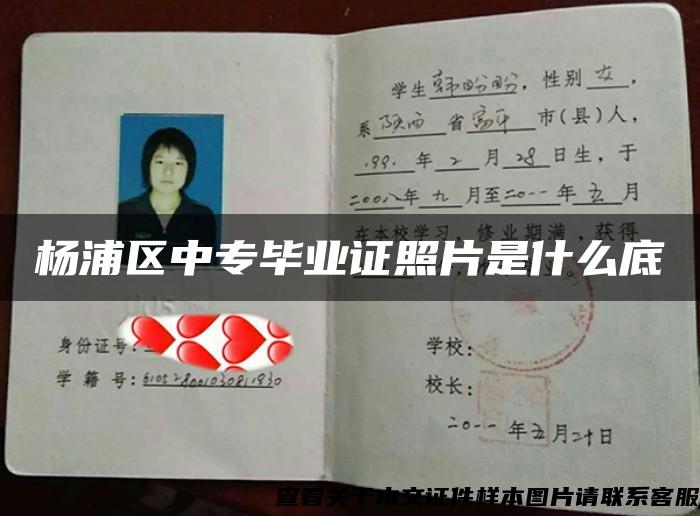 学生韩盼盼,性别女,
系陕西省富平市(县)人,
199.年2月28日生,于
二00八年九月至二0一一年五月
在本校学习,修业期满,获得
杨浦区中专毕业证照片是什么底
身份证号:
学籍号:610528001030811930
学校:
校长:
二0一一年五月二十日
查看关于本文证件样本图片请联系客服